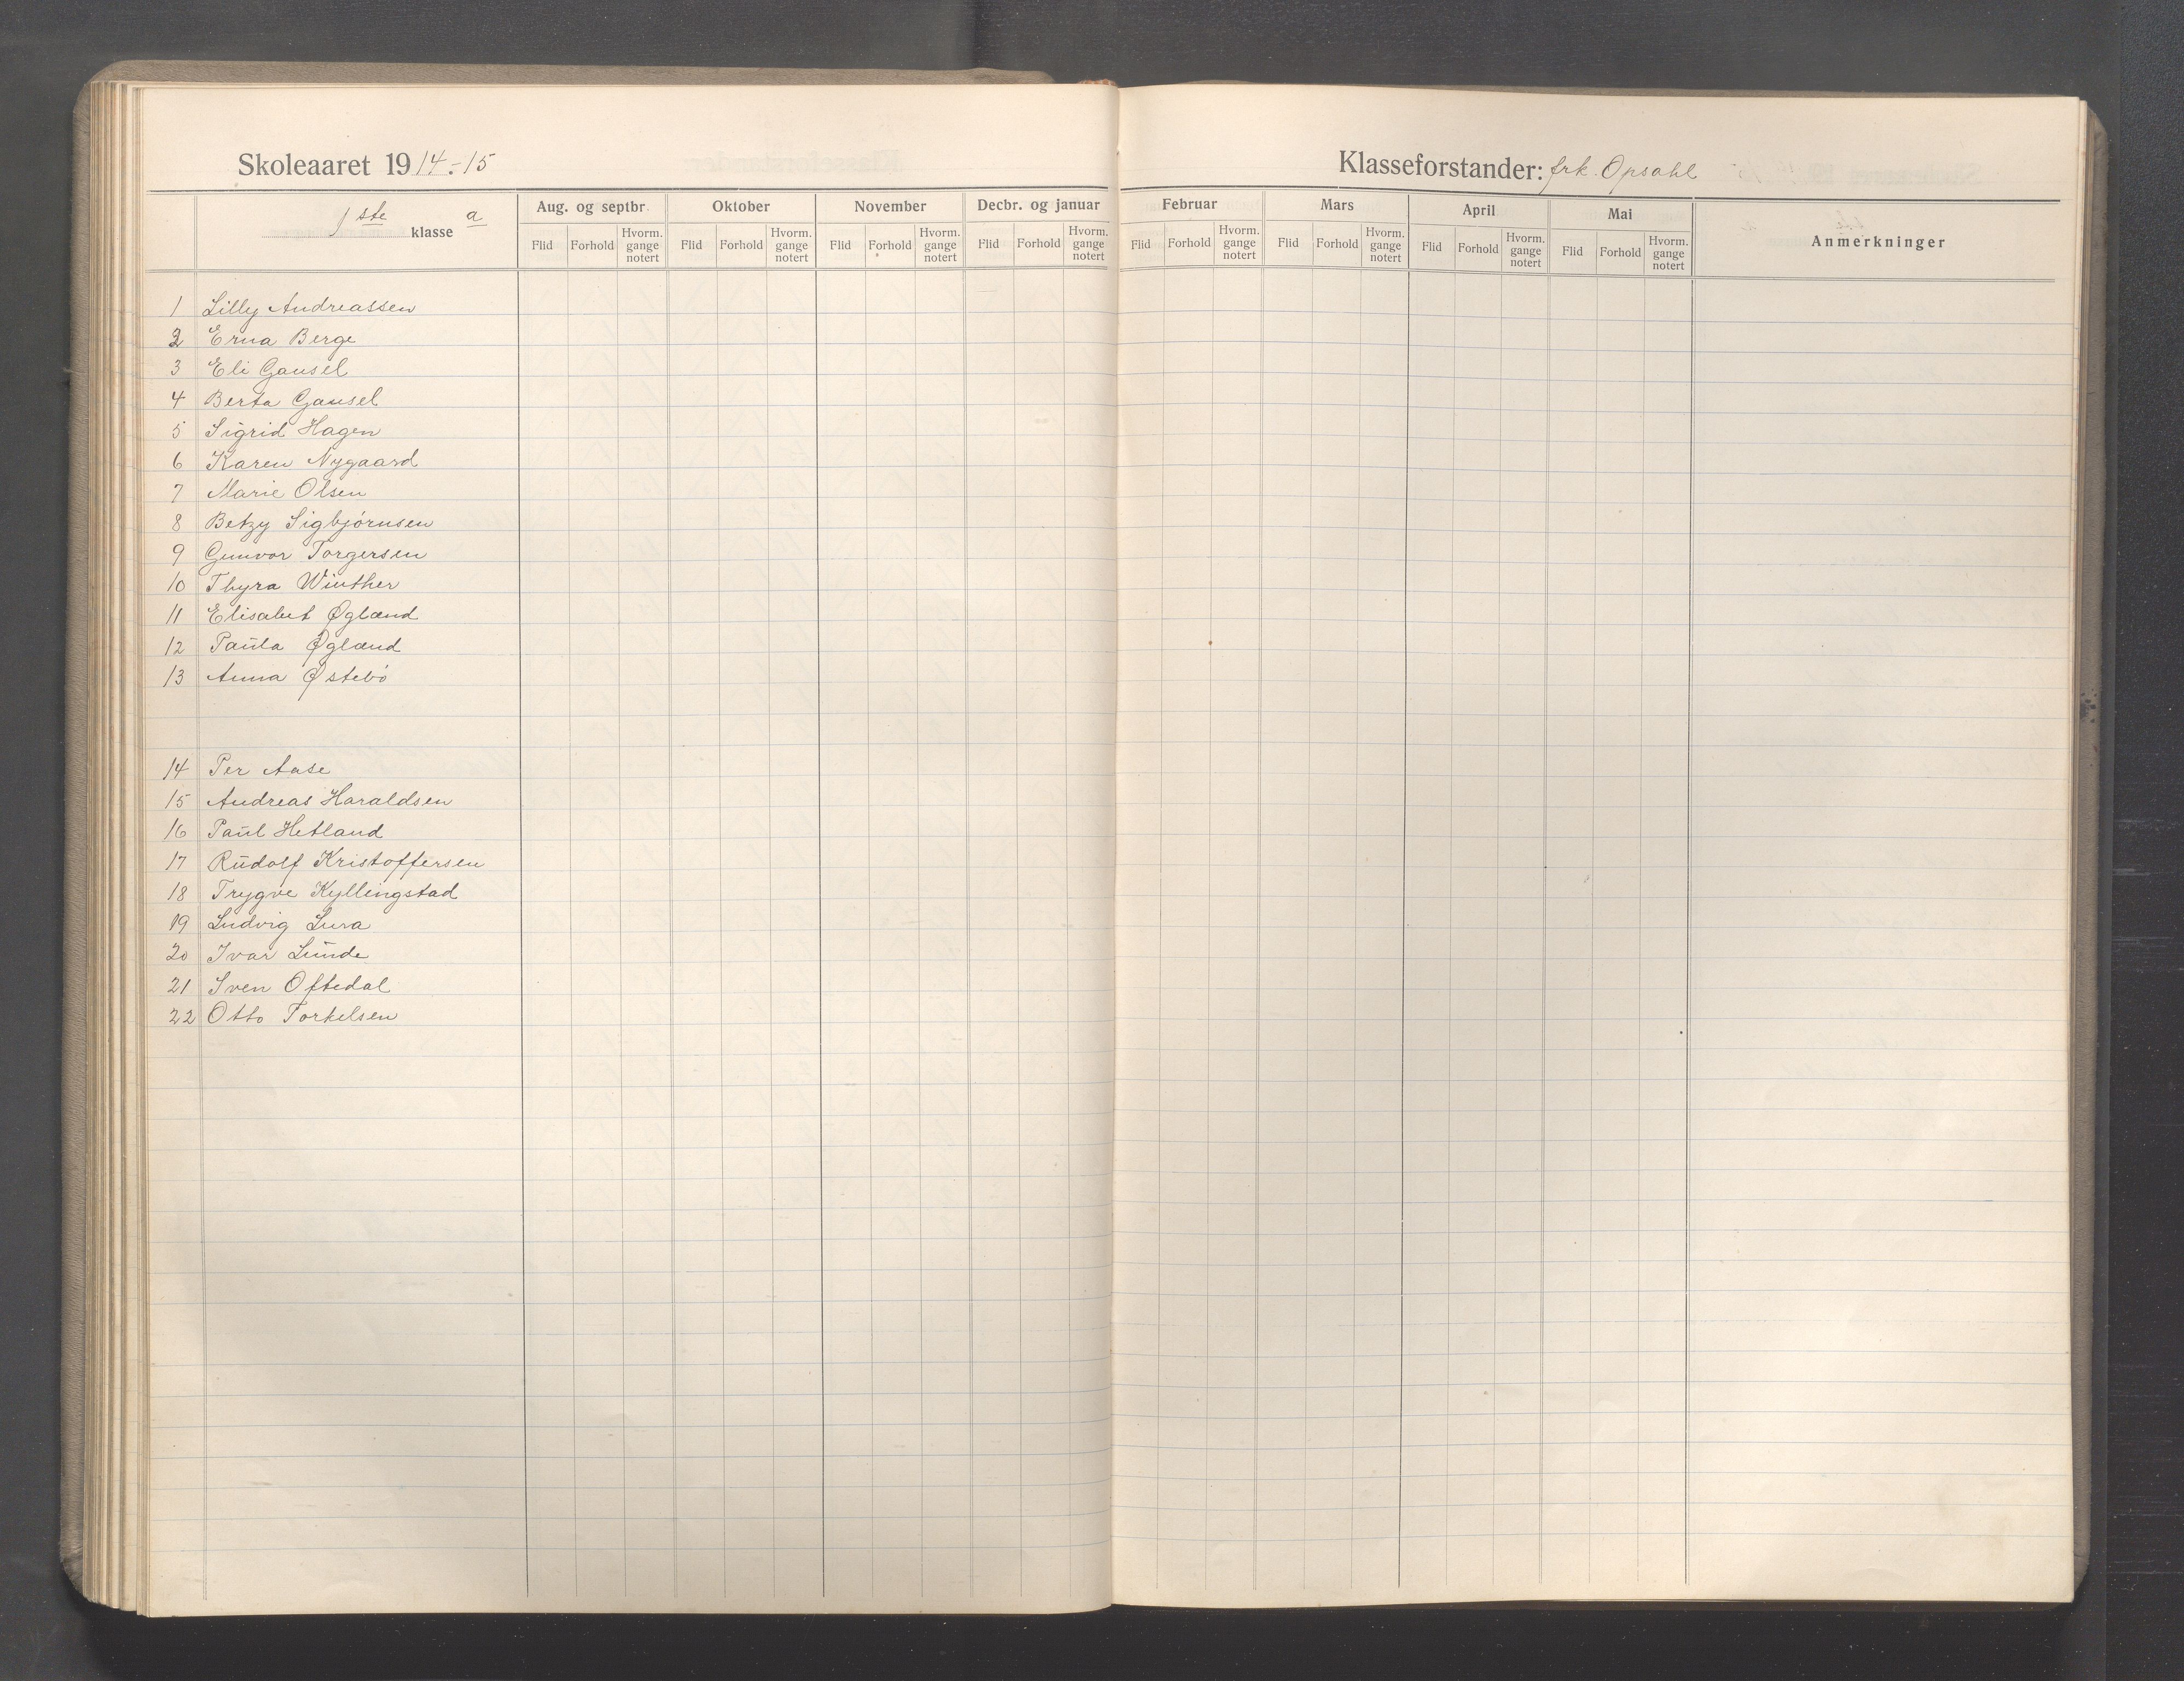 Skoleaaret 1914-15
Klasseforstander: frk. Opsahl
1ste klasse a
Aug. og septbr. Oktober November Decbr. og januar Februar Mars April Mai Anmerkninger
Flid Forhold Hvorm. gange notert Flid Forhold Hvorm. gange notert Flid Forhold Hvorm. gange notert Flid Forhold Hvorm. gange notert Flid Forhold Hvorm. gange notert Flid Forhold Hvorm. gange notert Flid Forhold Hvorm. gange notert Flid Forhold Hvorm. gange notert
1 Lilly Andreassen
2 Erna Berge
3 Eli Gausel
4 Berta Gausel
5 Sigrid Hagen
6 Karen Nygaard
7 Marie Olsen
8 Betzy Sigbjørnsen
9 Gunvor Torgersen
10 Thyra Winther
11 Elisabet Øglænd
12 Paula Øglænd
13 Anna Østebø
14 Per Aase
15 Andreas Haraldsen
16 Paul Hetland
17 Rudolf Kristoffersen
18 Trygve Kyllingstad
19 Ludvig Lura
20 Ivar Lunde
21 Sven Oftedal
22 Otto Torkelsen